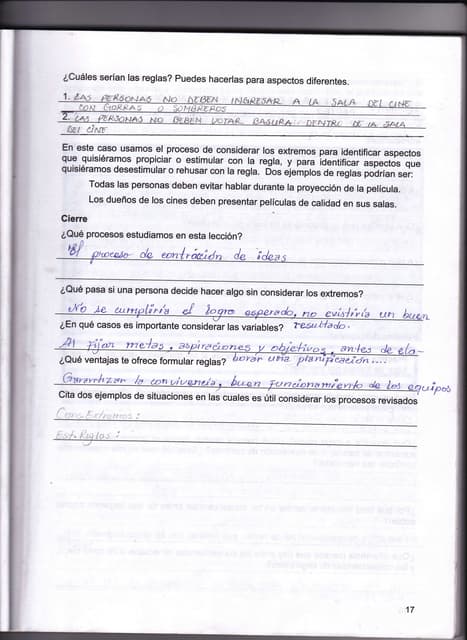 ¿Cuáles serían las reglas? Puedes hacerlas para aspectos diferentes.
1. LAS PERSONAS NO DEBEN INGRESAR A LA SALA DEL CINE
CON GORRAS O SOMBREROS
2. LAS PERSONAS NO DEBEN VOTAR BASURA DENTRO DE LA SALA
DEL CINE
En este caso usamos el proceso de considerar los extremos para identificar aspectos
que quisiéramos propiciar o estimular con la regla, y para identificar aspectos que
quisiéramos desestimular o rehusar con la regla. Dos ejemplos de reglas podrían ser:
Todas las personas deben evitar hablar durante la proyección de la película.
Los dueños de los cines deben presentar películas de calidad en sus salas.
Cierre
¿Qué procesos estudiamos en esta lección?
El proceso de contracción de ideas
¿Qué pasa si una persona decide hacer algo sin considerar los extremos?
No se cumpliría el logro esperado, no existiría un buen
¿En qué casos es importante considerar las variables? resultado.
Al fijar metas, aspiraciones y objetivos, antes de ela-
¿Qué ventajas te ofrece formular reglas? borar una planificación....
Garantizar la convivencia, buen funcionamiento de los equipos
Cita dos ejemplos de situaciones en las cuales es útil considerar los procesos revisados
Cons. Extremos:
Est. Reglas:
17